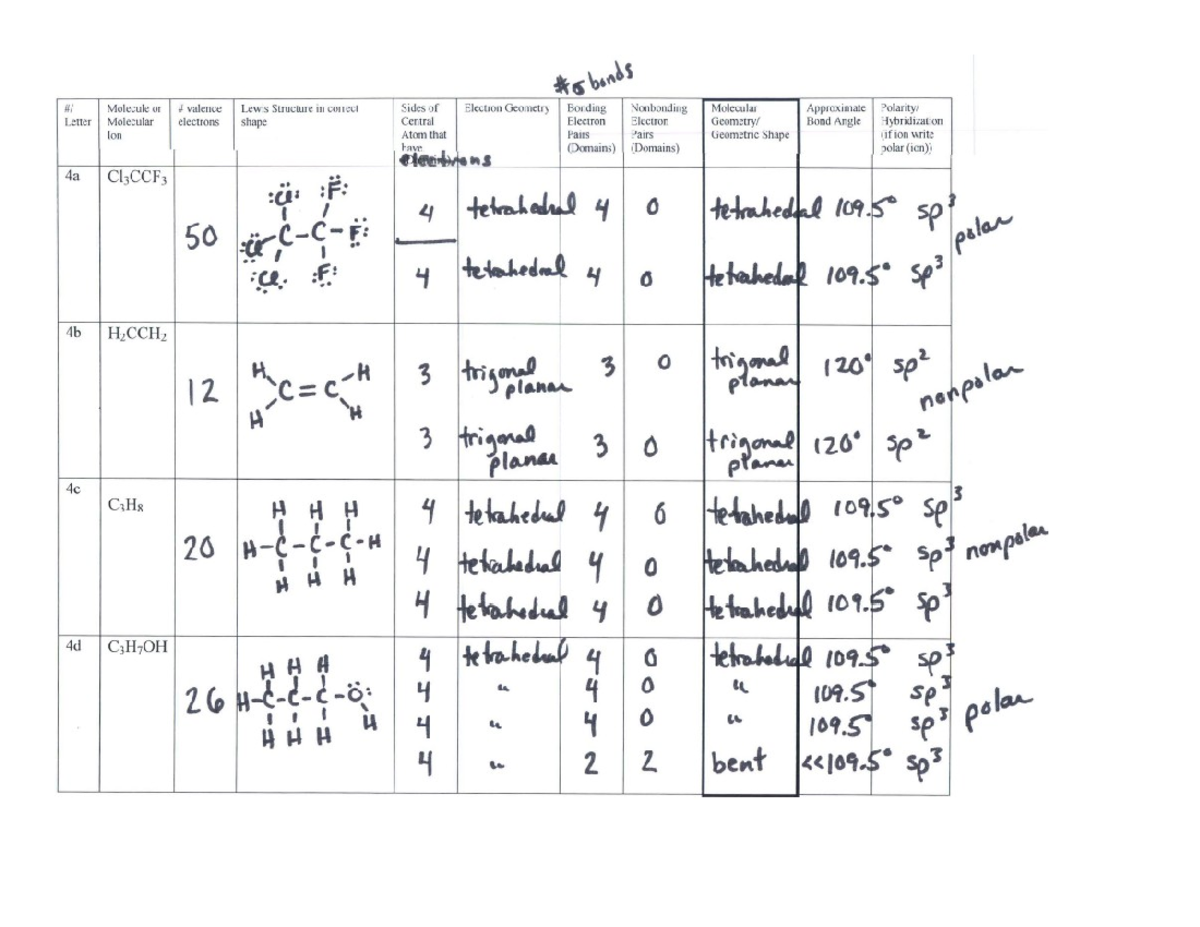 #σ bonds
#/ Letter | Molecule or Molecular Ion | # valence electrons | Lewis Structure in correct shape | Sides of Central Atom that have electrons | Electron Geometry | Bonding Electron Pairs (Domains) | Nonbonding Electron Pairs (Domains) | Molecular Geometry/ Geometric Shape | Approximate Bond Angle | Polarity/ Hybridization (if ion write polar (ion))
4a | Cl₃CCF₃ | 50
:C̈l: :F̈:
:C̈l-C-C-F̈:
:C̈l. :F̈:
4 tetrahedral 4 0 tetrahedral 109.5° sp³
polar
4 tetrahedral 4 0 tetrahedral 109.5° sp³
4b | H₂CCH₂ | 12
H H
C=C
H H
3 trigonal planar 3 0 trigonal planar 120° sp²
nonpolar
3 trigonal planar 3 0 trigonal planar 120° sp²
4c | C₃H₈ | 20
H H H
H-C-C-C-H
H H H
4 tetrahedral 4 0 tetrahedral 109.5° sp³
4 tetrahedral 4 0 tetrahedral 109.5° sp³ nonpolar
4 tetrahedral 4 0 tetrahedral 109.5° sp³
4d | C₃H₇OH | 26
H H H
H-C-C-C-Ö:
H H H H
4 tetrahedral 4 0 tetrahedral 109.5° sp³
4 " 4 0 " 109.5° sp³
4 " 4 0 " 109.5° sp³ polar
4 " 2 2 bent <<109.5° sp³